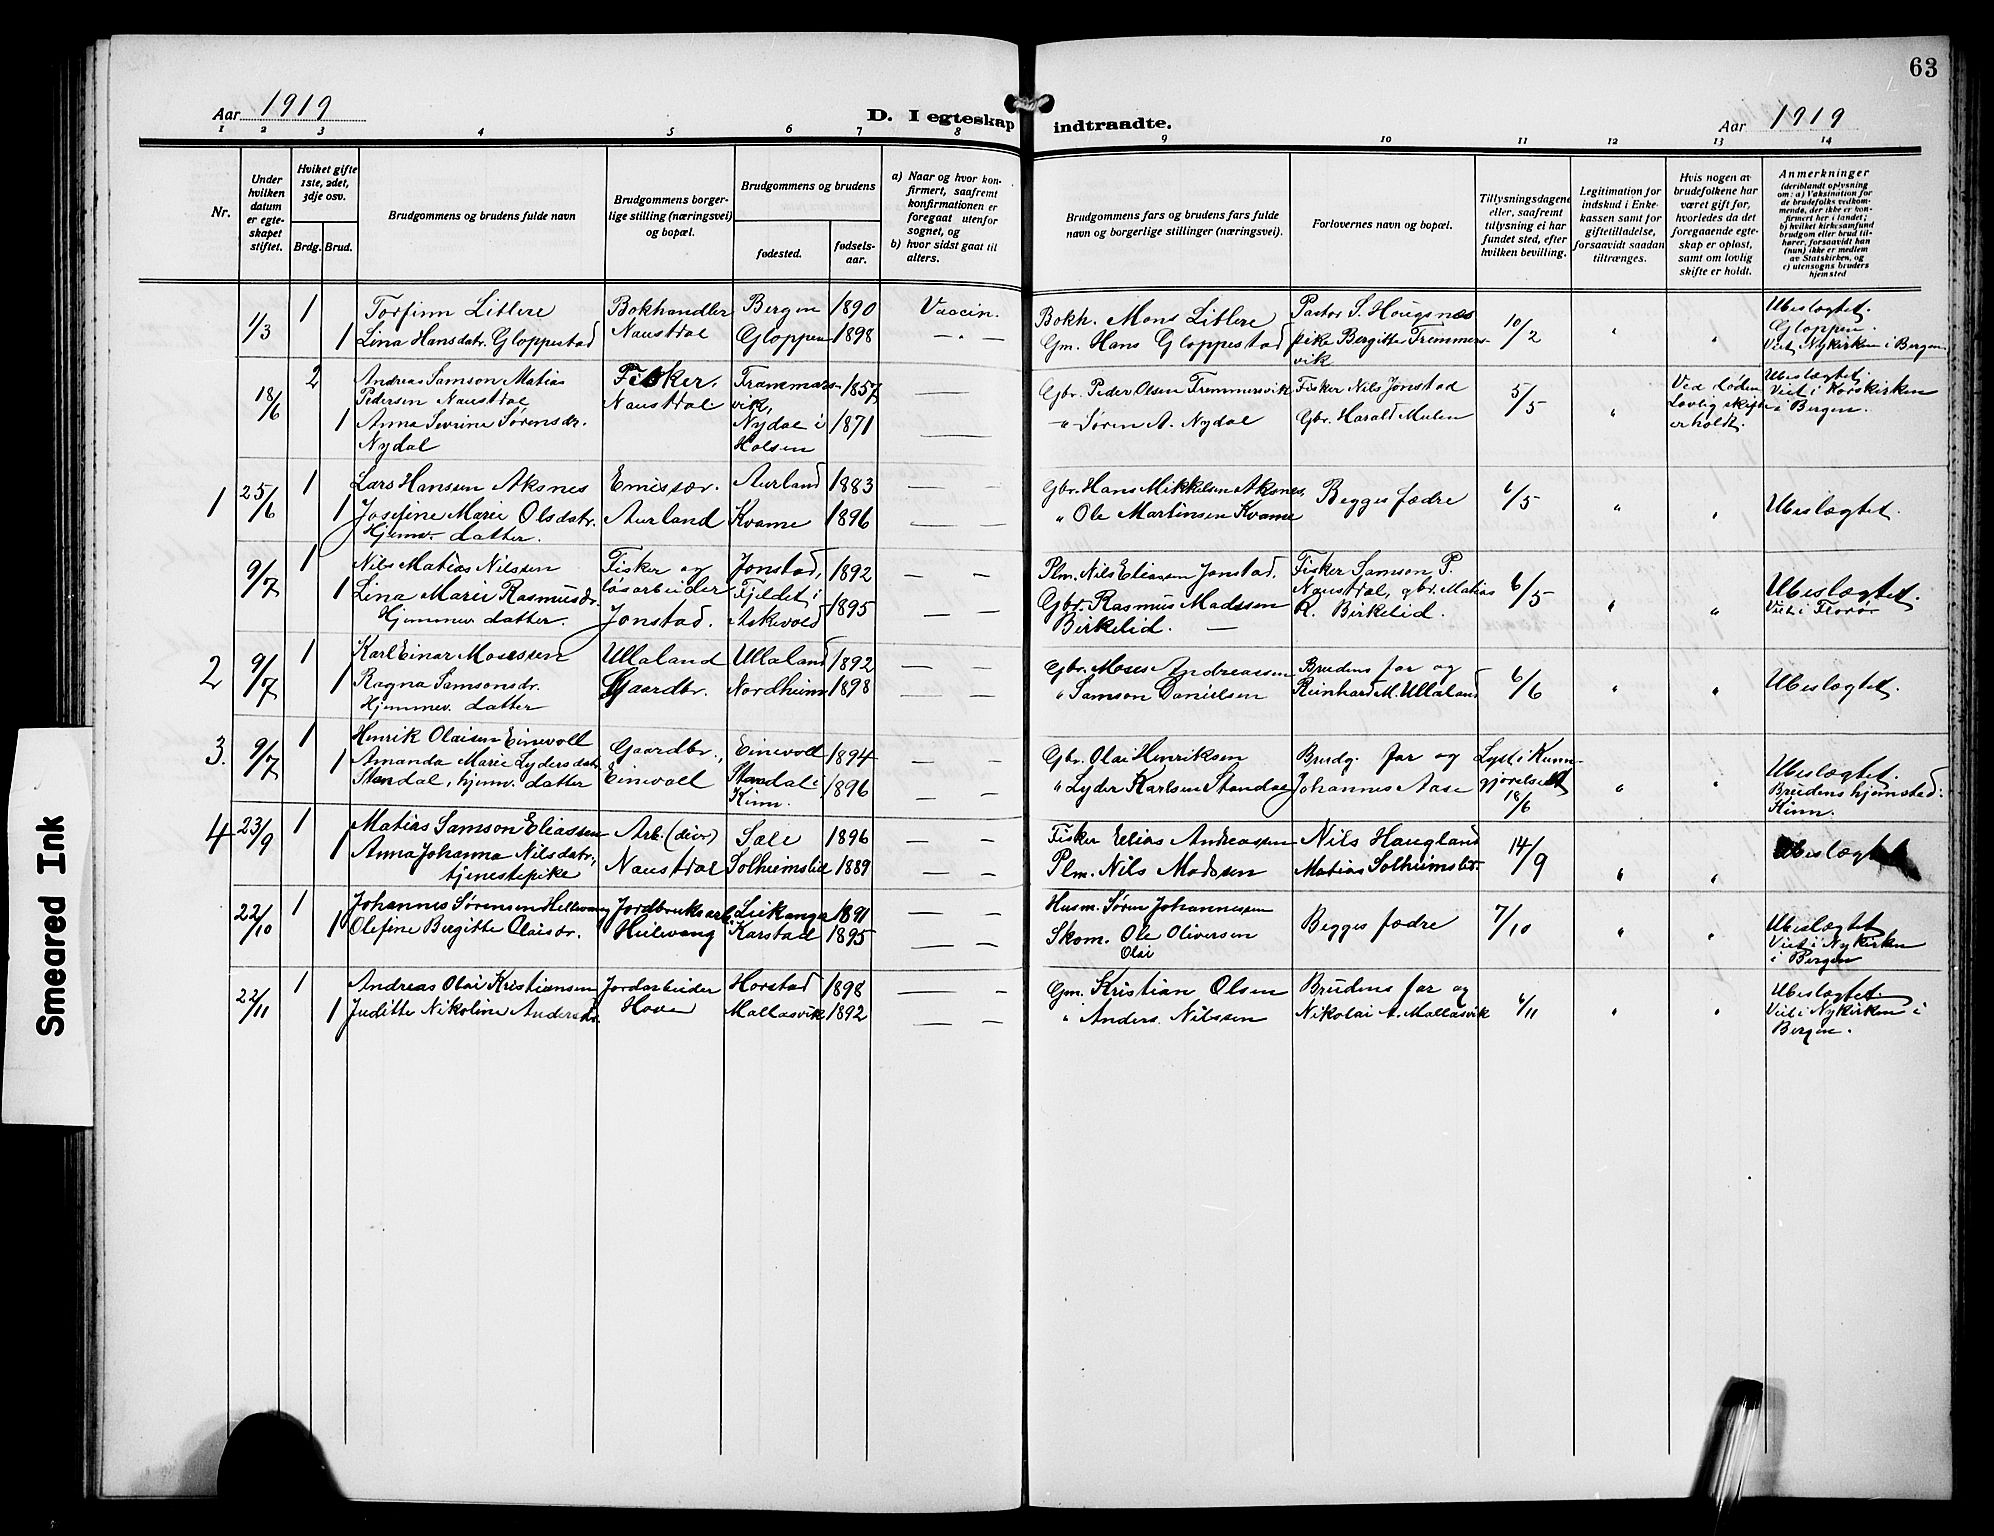 63
Aar 1919
D. I egteskap indtraadte.
Aar 1919
1 2 3 4 5 6 7 8 9 10 11 12 13 14
Nr.
Under hvilken datum er egteskapet stiftet.
Hviket gifte 1ste, 2det, 3dje osv.
Brdg. Brud.
Brudgommens og brudens fulde navn
Brudgommens borgerlige stilling (næringsvei) og bopæl.
Brudgommens og brudens
fødested.
fødselsaar.
a) Naar og hvor konfirmert, saafremt konfirmationen er foregaat utenfor sognet, og
b) hvor sidst gaat til alters.
Brudgommens fars og brudens fars fulde navn og borgerlige stillinger (næringsvei).
Forlovernes navn og bopæl.
Tillysningsdagene eller, saafremt tillysning ei har fundet sted, efter hvilken bevilling.
Legitimation for indskud i Enkekassen samt for giftetilladelse, forsaavidt saadan tiltrænges.
Hvis nogen av brudefolkene har været gift før, hvorledes da det foregaaende egteskap er opløst, samt om lovlig skifte er holdt.
Anmerkninger
(deriblandt oplysning om: a) Vaksination for de brudefolks vedkommende, der ikke er konfirmert her i landet; b) hvilket kirkesamfund brudgom eller brud tilhører, forsaavidt han (hun) ikke er medlem av Statskirken, og c) utensogns bruders hjemsted
1/3 1 Torfinn Litlere Bokhandler Bergen 1890 Vaccin. Bokh. Mons Litlere Pastor S. Hougsnæs 10/2 " " Ubeslægtet.
1 Lina Hansdatr. Gloppestad Naustdal Gloppen 1898 — " — Gm. Hans Gloppestad pike Bergitte Tremmersvik Gloppen.
Viet Nykirken i Bergen
18/6 2 Andreas Samson Matias Fisker. Trammarsvik, 1857 — Gbr. Peder Olsen Tremmersvik Fisker Nils Jonstad 5/5 " Ved døden Ubeslægtet.
Pedersen Naustdal Naustdal Lovlig skifte Viet i Korskirken
1 Anna Sevrine Sørensdr. Nydal i 1871 — " Søren A. Nydal Gbr. Harald Mulen er holdt. i Bergen.
Nydal Holsen
1 25/6 1 Lars Hanssen Aksnes Emissær. Aurland 1883 — — Gbr. Hans Mikkelsen Aksnes, Begges fædre 6/5 " " Ubeslægtet.
1 Josefine Marie Olsdatr. Aurland Kvame 1896 — — " Ole Martinsen Kvame
Hjemv. datter.
9/7 1 Nils Matias Nilssen Fisker og Jonstad, 1892 — — Plm. Nils Eliassen Jonstad. Fisker Samson P. 6/5 " " Ubeslægtet.
1 Lina Marie Rasmusdr. løsarbeider Fjeldet i 1895 Gbr. Rasmus Madssen Naustdal, gbr. Matias Viet i Florø
Hjemmev. datter. Jonstad. Askevold Birkelid. — R. Birkelid.
2 9/7 1 Karl Einar Mosessen Ullaland Ullaland 1892 Gbr. Moses Andreassen Brudens far og 6/6 " " Ubeslægtet.
1 Ragna Samsonsdr. Gaardbr. Nordheim 1898 " Samson Danielsen Reinhard M. Ullaland
Hjemmev. datter
3. 9/7 1 Henrik Olaisen Einevoll Gaardbr., Einevoll 1894 — — Gbr. Olai Henriksen Brudg. far og Lyst i Kunngjørelse " " Ubeslægtet.
1 Amanda Marie Lydersdatr. Einevoll Standal i 1896 — — " Lyder Karlsen Standal Johannes Aase 18/6 Brudens hjemsted:
Standal, hjemv. datter Kinn. Kinn.
4 23/9 1 Matias Samson Eliassen Arb. (div) Sæle 1896 — — Fisker Elias Andreassen Nils Haugland 14/9 " " Ubeslægtet
1 Anna Johanna Nilsdatr., Naustdal Solheimslid 1889 — — Plm. Nils Madssen Matias Solheimslid.
tjenestepike
22/10 1 Johannes Sørensen Hellevang Jordbruksarb. Leikanger 1891 Husm. Søren Johannessen Begges fædre 7/10 " " Ubeslægtet
1 Olefine Bergitte Olaisdr. Hellevang Karstad 1895 — — Skom. Ole Oliversen Viet i Nykirken
Olai i Bergen
22/11 1 Andreas Olai Kristiansen Jordarbeider Horstad 1898 — — Gm. Kristian Olsen Brudens far og 6/11 " " Ubeslægtet.
1 Juditte Nikoline Andersdr. Hove Mallasvik 1892 — — " Anders Nilssen Nikolai A. Mallasvik Viet i Nykirken i
Bergen.
Smeared Ink